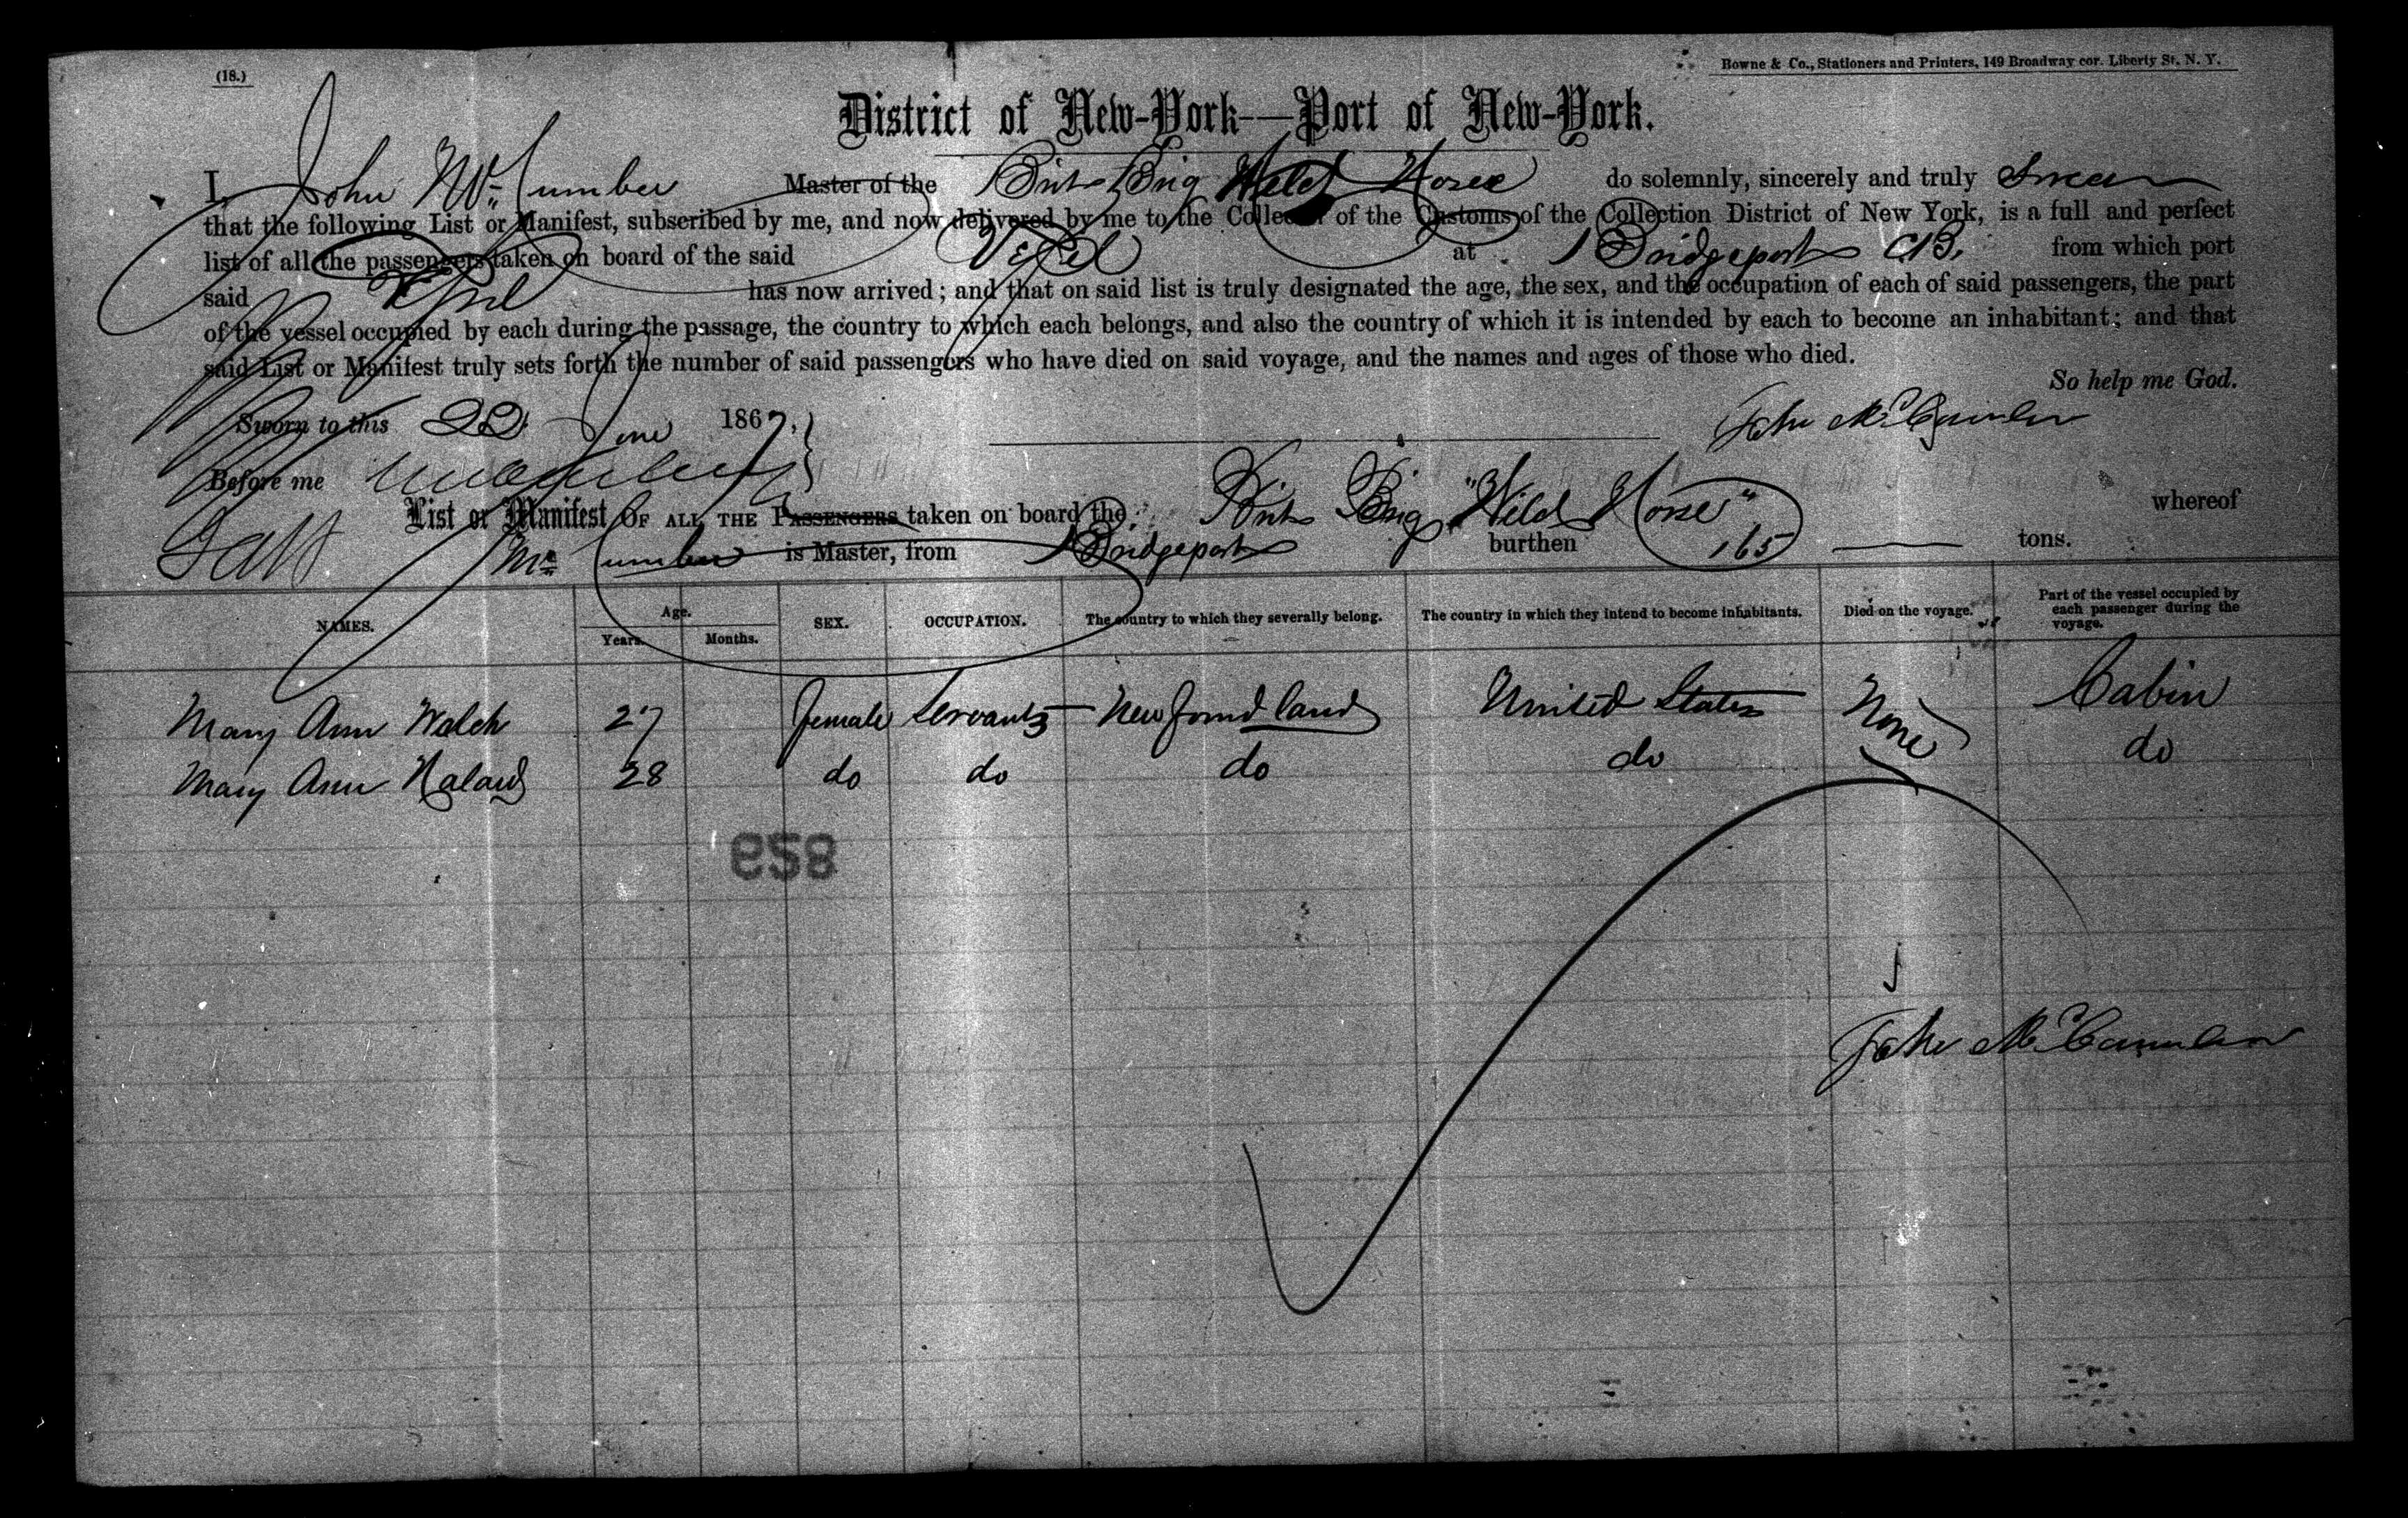 (18.)
Bowne & Co., Stationers and Printers, 149 Broadway cor. Liberty St. N. Y.
District of New-York—Port of New-York.
I, John Mc Cumber Master of the Brit Brig Wild Horse do solemnly, sincerely and truly Swear
that the following List or Manifest, subscribed by me, and now delivered by me to the Collector of the Customs of the Collection District of New York, is a full and perfect
list of all the passengers taken on board of the said Vessel at Bridgeport CB. from which port
said Vessel has now arrived; and that on said list is truly designated the age, the sex, and the occupation of each of said passengers, the part
of the vessel occupied by each during the passage, the country to which each belongs, and also the country of which it is intended by each to become an inhabitant; and that
said List or Manifest truly sets forth the number of said passengers who have died on said voyage, and the names and ages of those who died.
So help me God.
Sworn to this 22 June 1867, John McCumber
Before me
List or Manifest OF ALL THE PASSENGERS taken on board the Brit Brig "Wild Horse" whereof
Mc Cumber is Master, from Bridgeport burthen 165 tons.
NAMES. Age. Years. Months. SEX. OCCUPATION. The country to which they severally belong. The country in which they intend to become inhabitants. Died on the voyage. Part of the vessel occupied by each passenger during the voyage.
Mary Ann Welch 27 female Servants Newfoundland United States None Cabin
Mary Ann 28 do do do do do
859
John McCumber